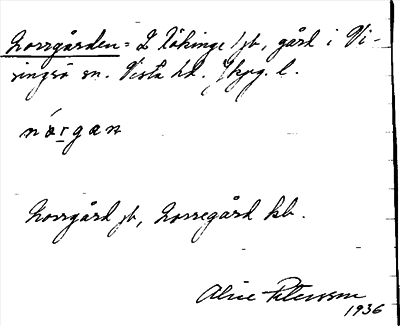 Norrgården = 2 Tökinge jb, gård i Vi-
singsö sn. Vista hd. Jkpg. l.
nórgan
Norrgård jb, Norregård kb.
Alice Petersson
1936